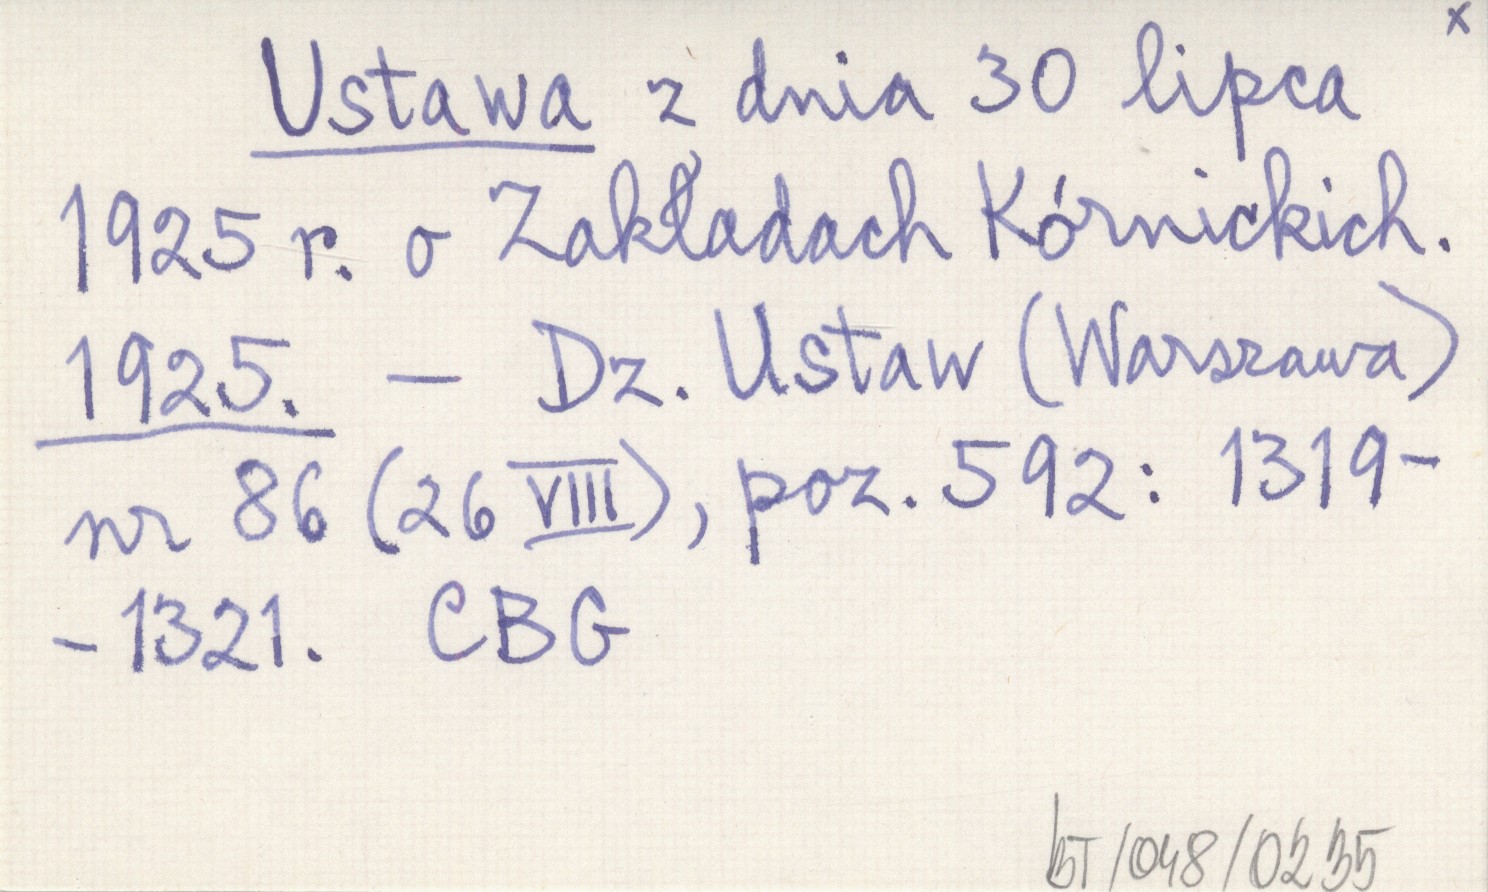 x
Ustawa z dnia 30 lipca
1925 r. o Zakładach Kórnickich.
1925. — Dz. Ustaw (Warszawa)
nr 86 (26 VIII), poz. 592: 1319-
-1321. CBG
BT/048/0235